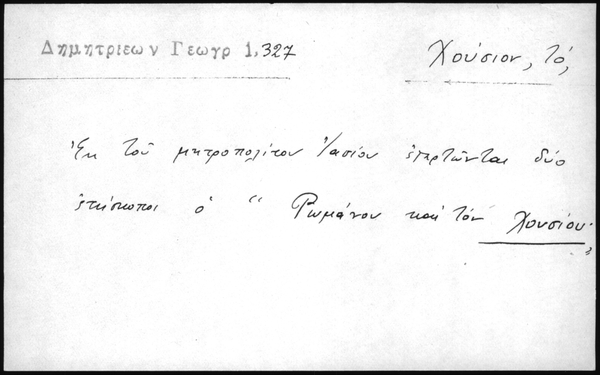 Δημητριεων Γεωγρ 1,327
Χούσιον, τό,
Ἐκ τοῦ μητροπολίτου Ἰασίου ἐξαρτῶνται δύο
ἐπίσκοποι ὁ " Ρωμάνου καὶ τὸν Χουσίου."